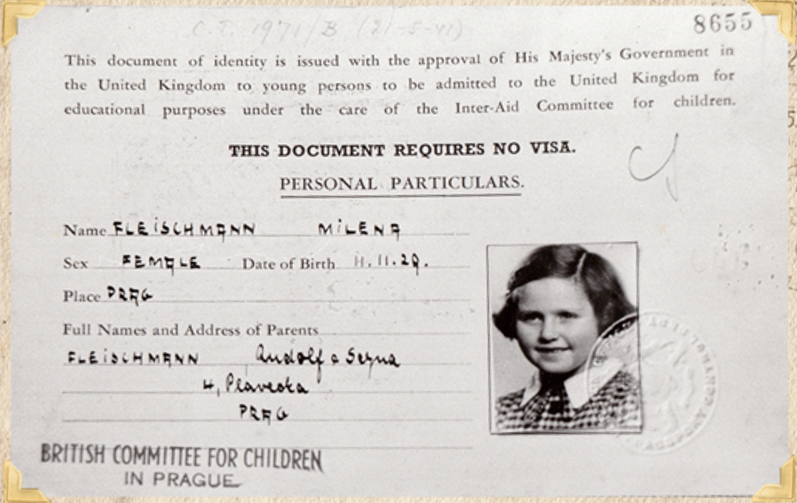 C.I. 1971/B (21-5-41)
8655
This document of identity is issued with the approval of His Majesty's Government in
the United Kingdom to young persons to be admitted to the United Kingdom for
educational purposes under the care of the Inter-Aid Committee for children.
THIS DOCUMENT REQUIRES NO VISA.
PERSONAL PARTICULARS.
Name FLEISCHMANN MILENA
Sex FEMALE Date of Birth 11.11.29.
Place PRAG
Full Names and Address of Parents
FLEISCHMANN Rudolf a
4,
PRAG
BRITISH COMMITTEE FOR CHILDREN
IN PRAGUE